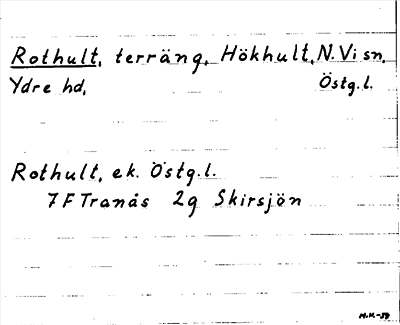 Rothult, terräng, Hökhult, N. Vi sn,
Ydre hd, Östg.l.
Rothult, ek. Östg.l.
7F Tranås 2g Skirsjön
M.H.-59